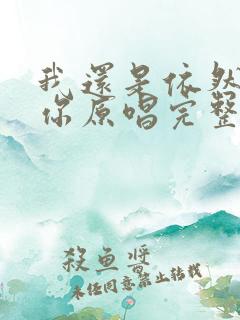 我還是依然
你原唱完整
殺魚醬
未经同意禁止转载